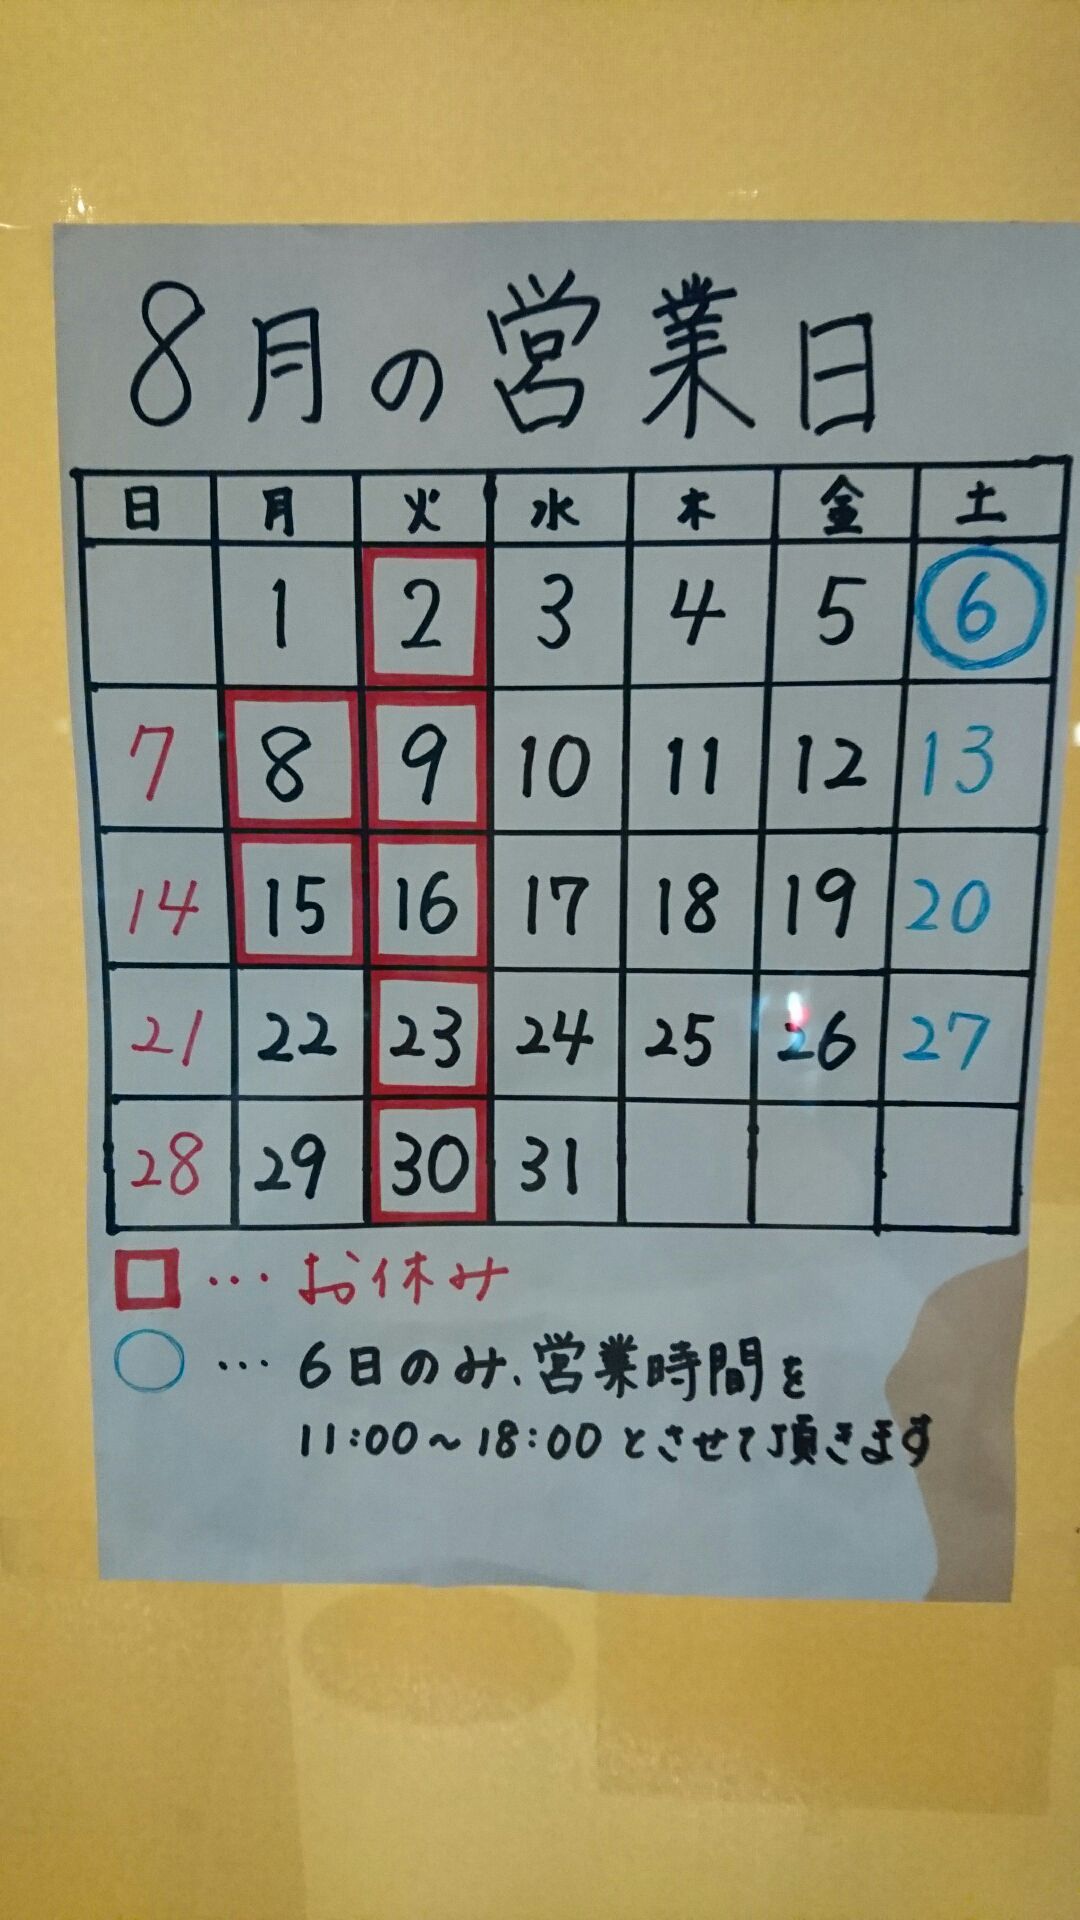 8月の営業日
日 月 火 水 木 金 土
1 2 3 4 5 6
7 8 9 10 11 12 13
14 15 16 17 18 19 20
21 22 23 24 25 26 27
28 29 30 31
□…お休み
○…6日のみ、営業時間を
11:00～18:00とさせて頂きます